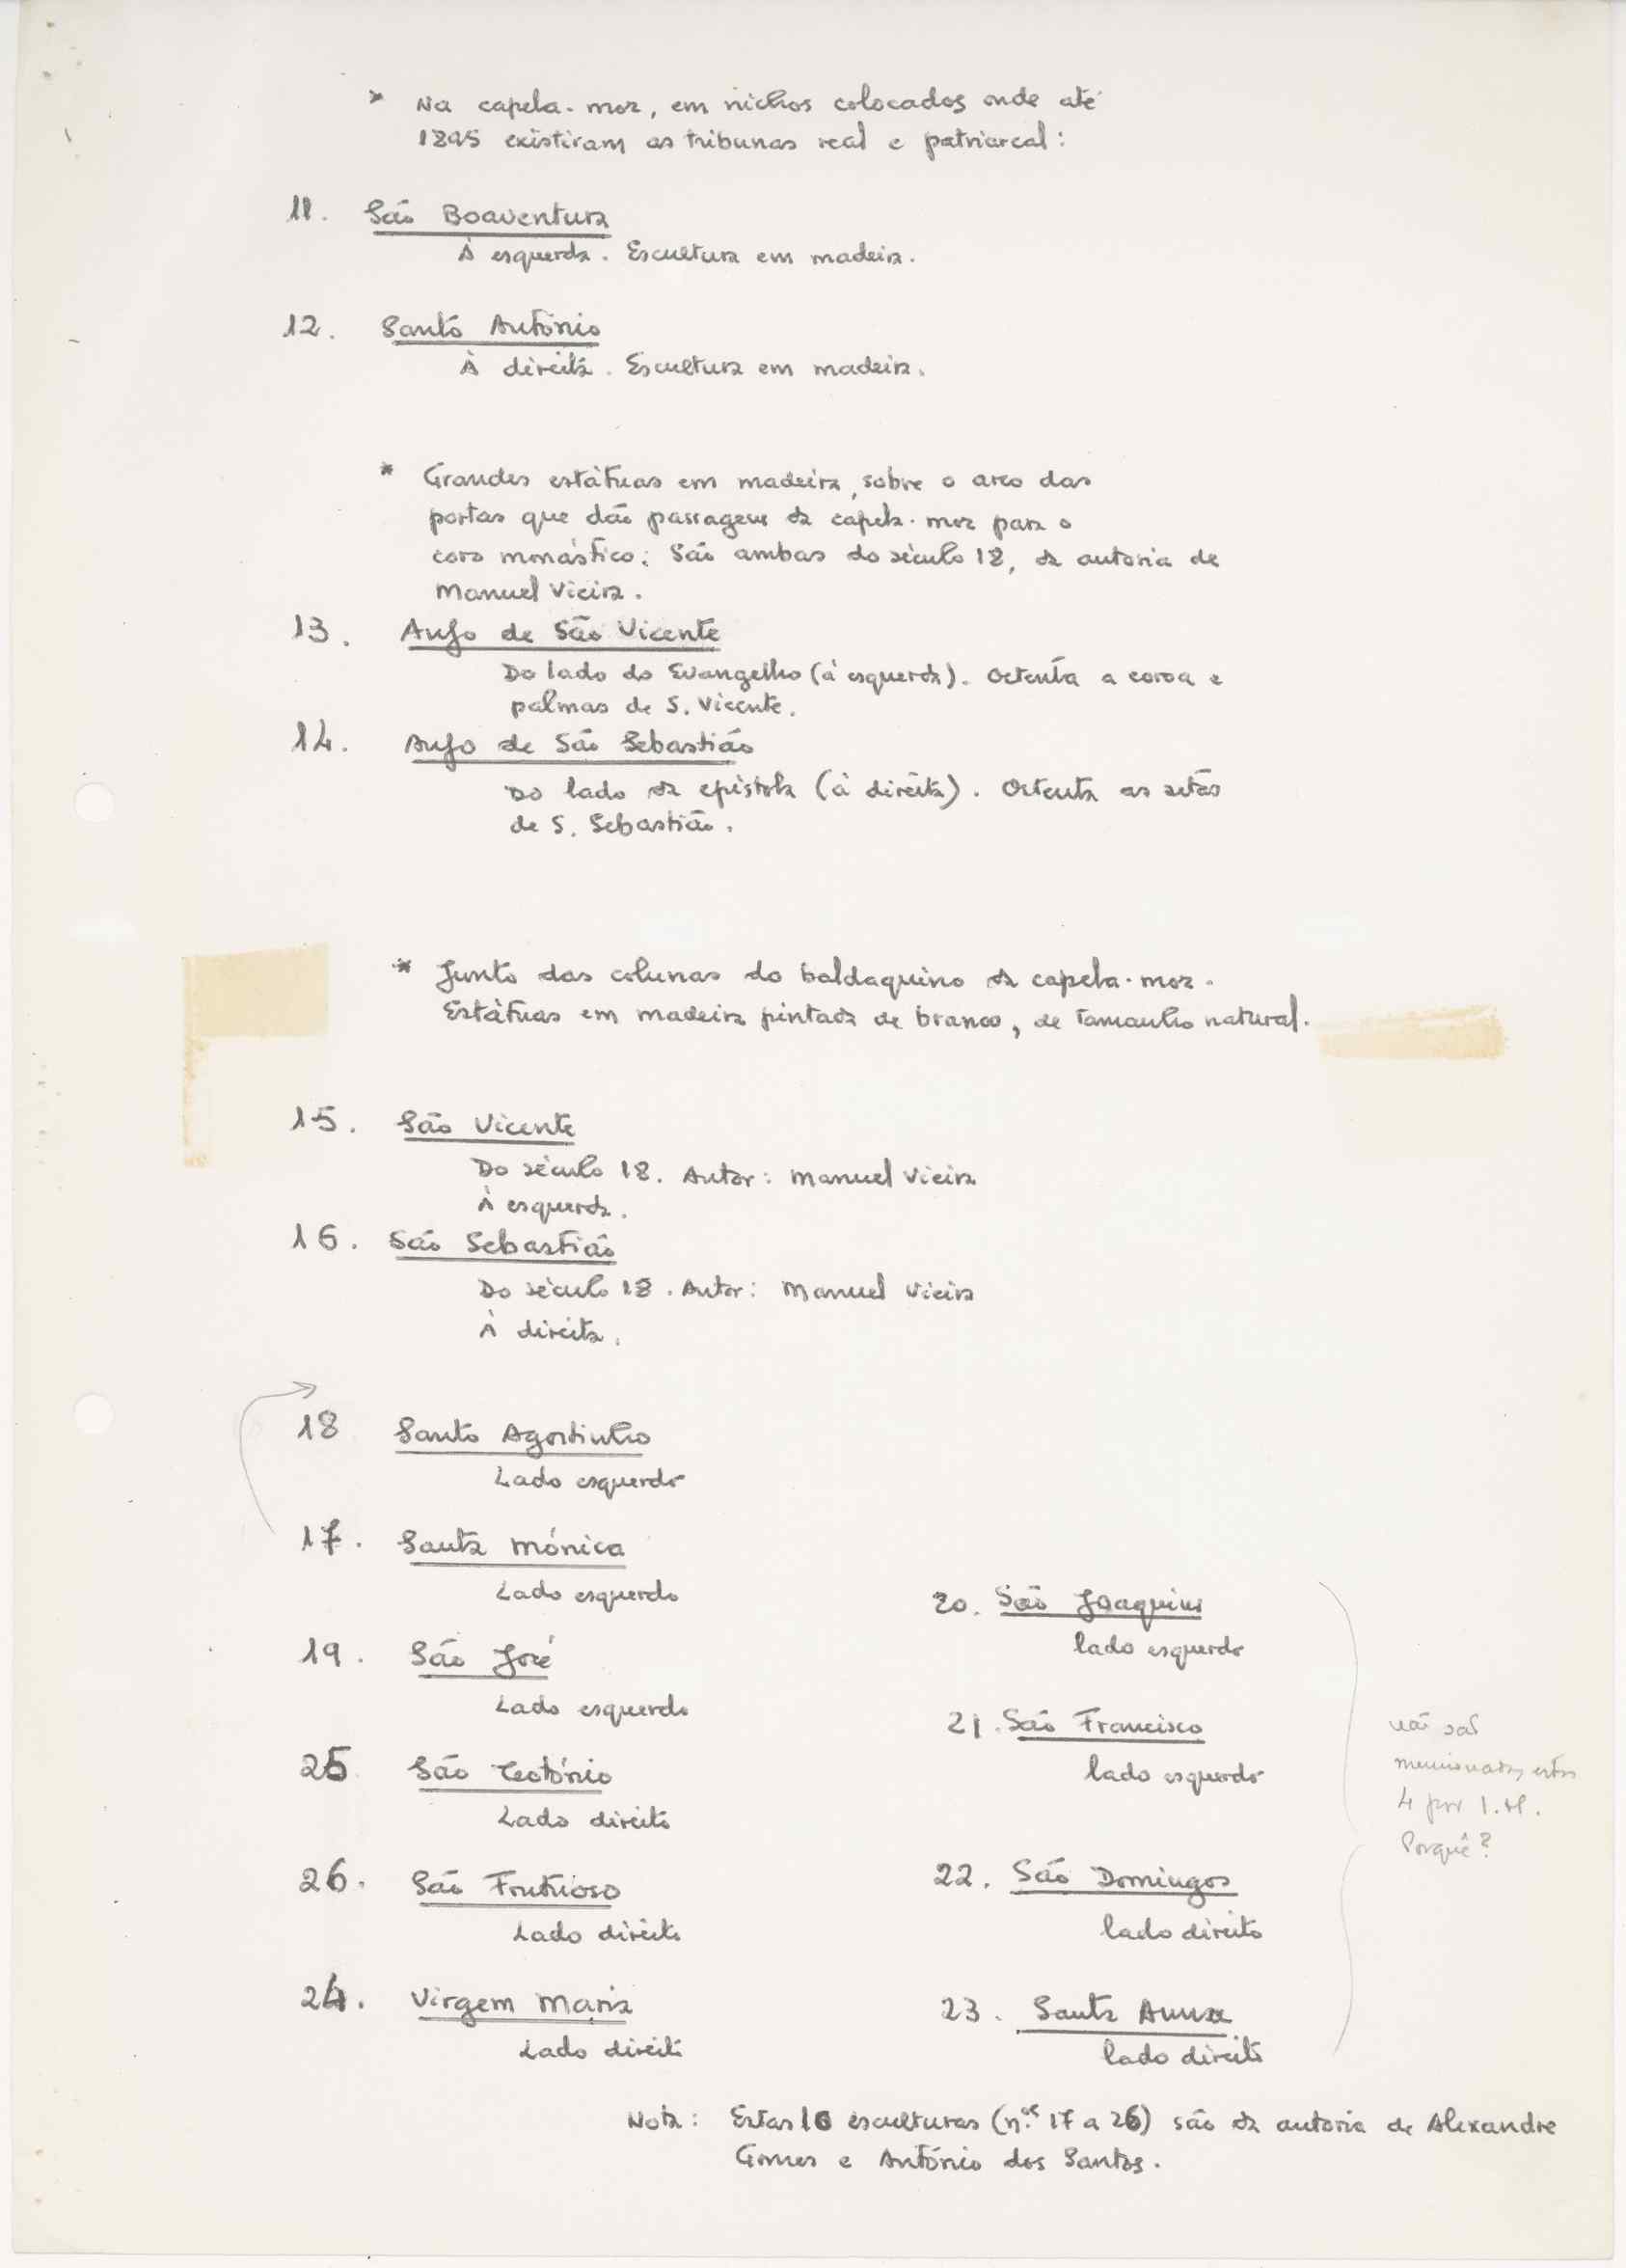 * Na capela-mor, em nichos colocados onde até
1895 existiram as tribunas real e patriarcal:
11. São Boaventura
À esquerda. Escultura em madeira.
12. Santo António
À direita. Escultura em madeira.
* Grandes estátuas em madeira, sobre o arco das
portas que dão passagem da capela-mor para o
coro monástico: São ambas do século 18, da autoria de
Manuel Vieira.
13. Anjo de São Vicente
Do lado do Evangelho (à esquerda). Ostenta a coroa e
palmas de S. Vicente.
14. Anjo de São Sebastião
Do lado da epístola (à direita). Ostenta as setas
de S. Sebastião.
* Junto das colunas do baldaquino da capela-mor.
Estátuas em madeira pintada de branco, de tamanho natural.
15. São Vicente
Do século 18. Autor: Manuel Vieira
À esquerda.
16. São Sebastião
Do século 18. Autor: Manuel Vieira
À direita.
18 Santo Agostinho
Lado esquerdo
17. Santa Mónica
Lado esquerdo
19. São José
Lado esquerdo
25 São Teotónio
Lado direito
26. São Frutuoso
Lado direito
24. Virgem Maria
Lado direito
20. São Joaquim
lado esquerdo
21. São Francisco
lado esquerdo
22. São Domingos
lado direito
23. Santa Anna
lado direito
não são
mencionadas estas
4 por
Porquê?
Nota: Estas 10 esculturas (n.os 17 a 26) são da autoria de Alexandre
Gomes e António dos Santos.